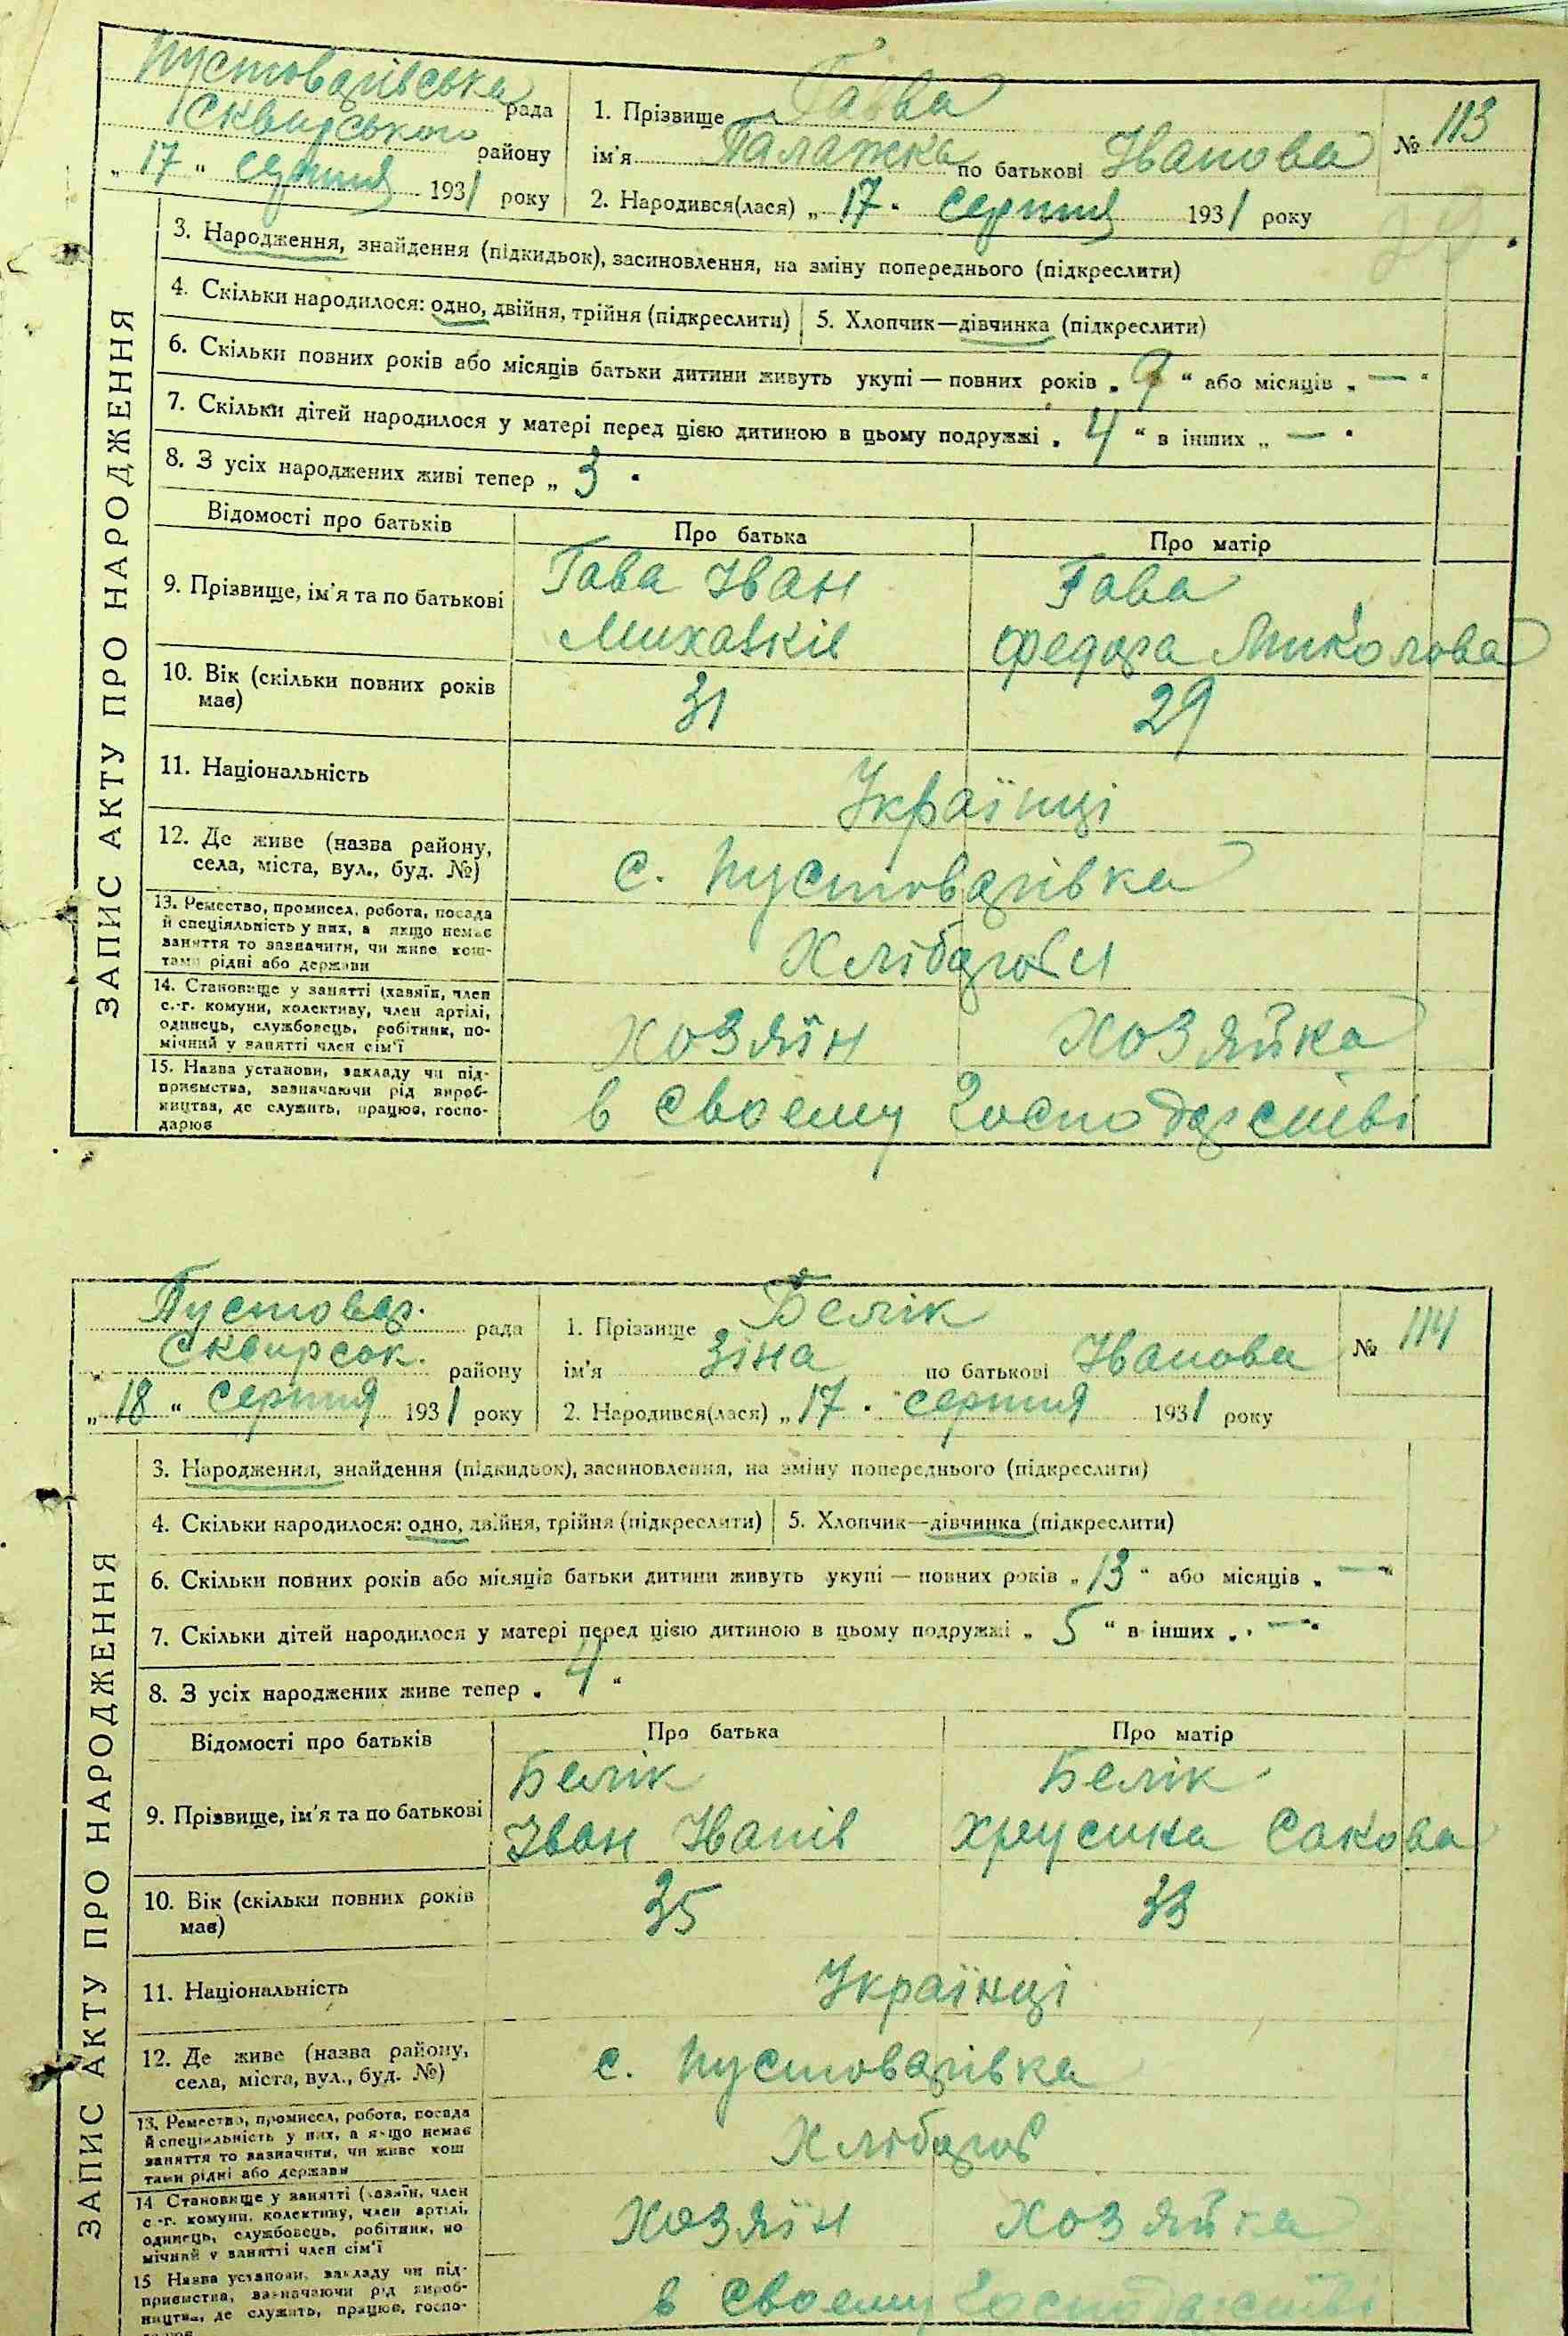 Пустоварівська рада
Сквирського району
„ 17 “ серпня 1931 року
1. Прізвище Гава
ім'я Палажка по батькові Іванова
№ 113
2. Народився(лася) „ 17 “ серпня 1931 року
ЗАПИС АКТУ ПРО НАРОДЖЕННЯ
3. Народження, знайдення (підкидьок), засиновлення, на зміну попереднього (підкреслити)
4. Скільки народилося: одно, двійня, трійня (підкреслити) 5. Хлопчик—дівчинка (підкреслити)
6. Скільки повних років або місяців батьки дитини живуть укупі — повних років „ 9 “ або місяців „ — “
7. Скільки дітей народилося у матері перед цією дитиною в цьому подружжі „ 4 “ в інших „ — “
8. З усіх народжених живі тепер „ 3 “
Відомості про батьків Про батька Про матір
9. Прізвище, ім'я та по батькові
Гава Іван
Михавків
Гава
Федора Миколова
10. Вік (скільки повних років
має)
31 29
11. Національність Українці
12. Де живе (назва району,
села, міста, вул., буд. №)
с. Пустоварівка
13. Ремество, промисел, робота, посада
й спеціяльність у них, а якщо немає
заняття то зазначити, чи живе кош-
тами рідні або держави
Хлібороби
14. Становище у занятті (хазяїн, член
с.-г. комуни, колективу, член артілі,
одинець, службовець, робітник, по-
мічний у занятті член сім'ї
хозяїн хозяйка
15. Назва установи, закладу чи під-
приємства, зазначаючи рід вироб-
ництва, де служить, працює, госпо-
дарює
в своему господарстві
Пустовар. рада
Сквирсок. району
„ 18 “ серпня 1931 року
1. Прізвище Белік
ім'я Зіна по батькові Іванова
№ 114
2. Народився(лася) „ 17 “ серпня 1931 року
ЗАПИС АКТУ ПРО НАРОДЖЕННЯ
3. Народження, знайдення (підкидьок), засиновлення, на зміну попереднього (підкреслити)
4. Скільки народилося: одно, двійня, трійня (підкреслити) 5. Хлопчик—дівчинка (підкреслити)
6. Скільки повних років або місяців батьки дитини живуть укупі — повних років „ 13 “ або місяців „ — “
7. Скільки дітей народилося у матері перед цією дитиною в цьому подружжі „ 5 “ в інших „ — “
8. З усіх народжених живе тепер „ 4 “
Відомості про батьків Про батька Про матір
9. Прізвище, ім'я та по батькові
Белік
Іван Іванів
Белік
Хреусина Сакова
10. Вік (скільки повних років
має)
35 33
11. Національність Українці
12. Де живе (назва району,
села, міста, вул., буд. №)
с. Пустоварівка
13. Ремество, промисел, робота, посада
й спеціяльність у них, а якщо немає
заняття то зазначити, чи живе кош
тами рідні або держави
Хлібороб
14 Становище у занятті (хазяїн, член
с-г. комуни, колективу, член артілі,
одинець, службовець, робітник, по
мічний у занятті член сім'ї
хозяїн хозяйка
15 Назва установи, закладу чи під-
приємства, зазначаючи рід вироб-
ництва, де служить, працює, госпо-
в своему господарстві